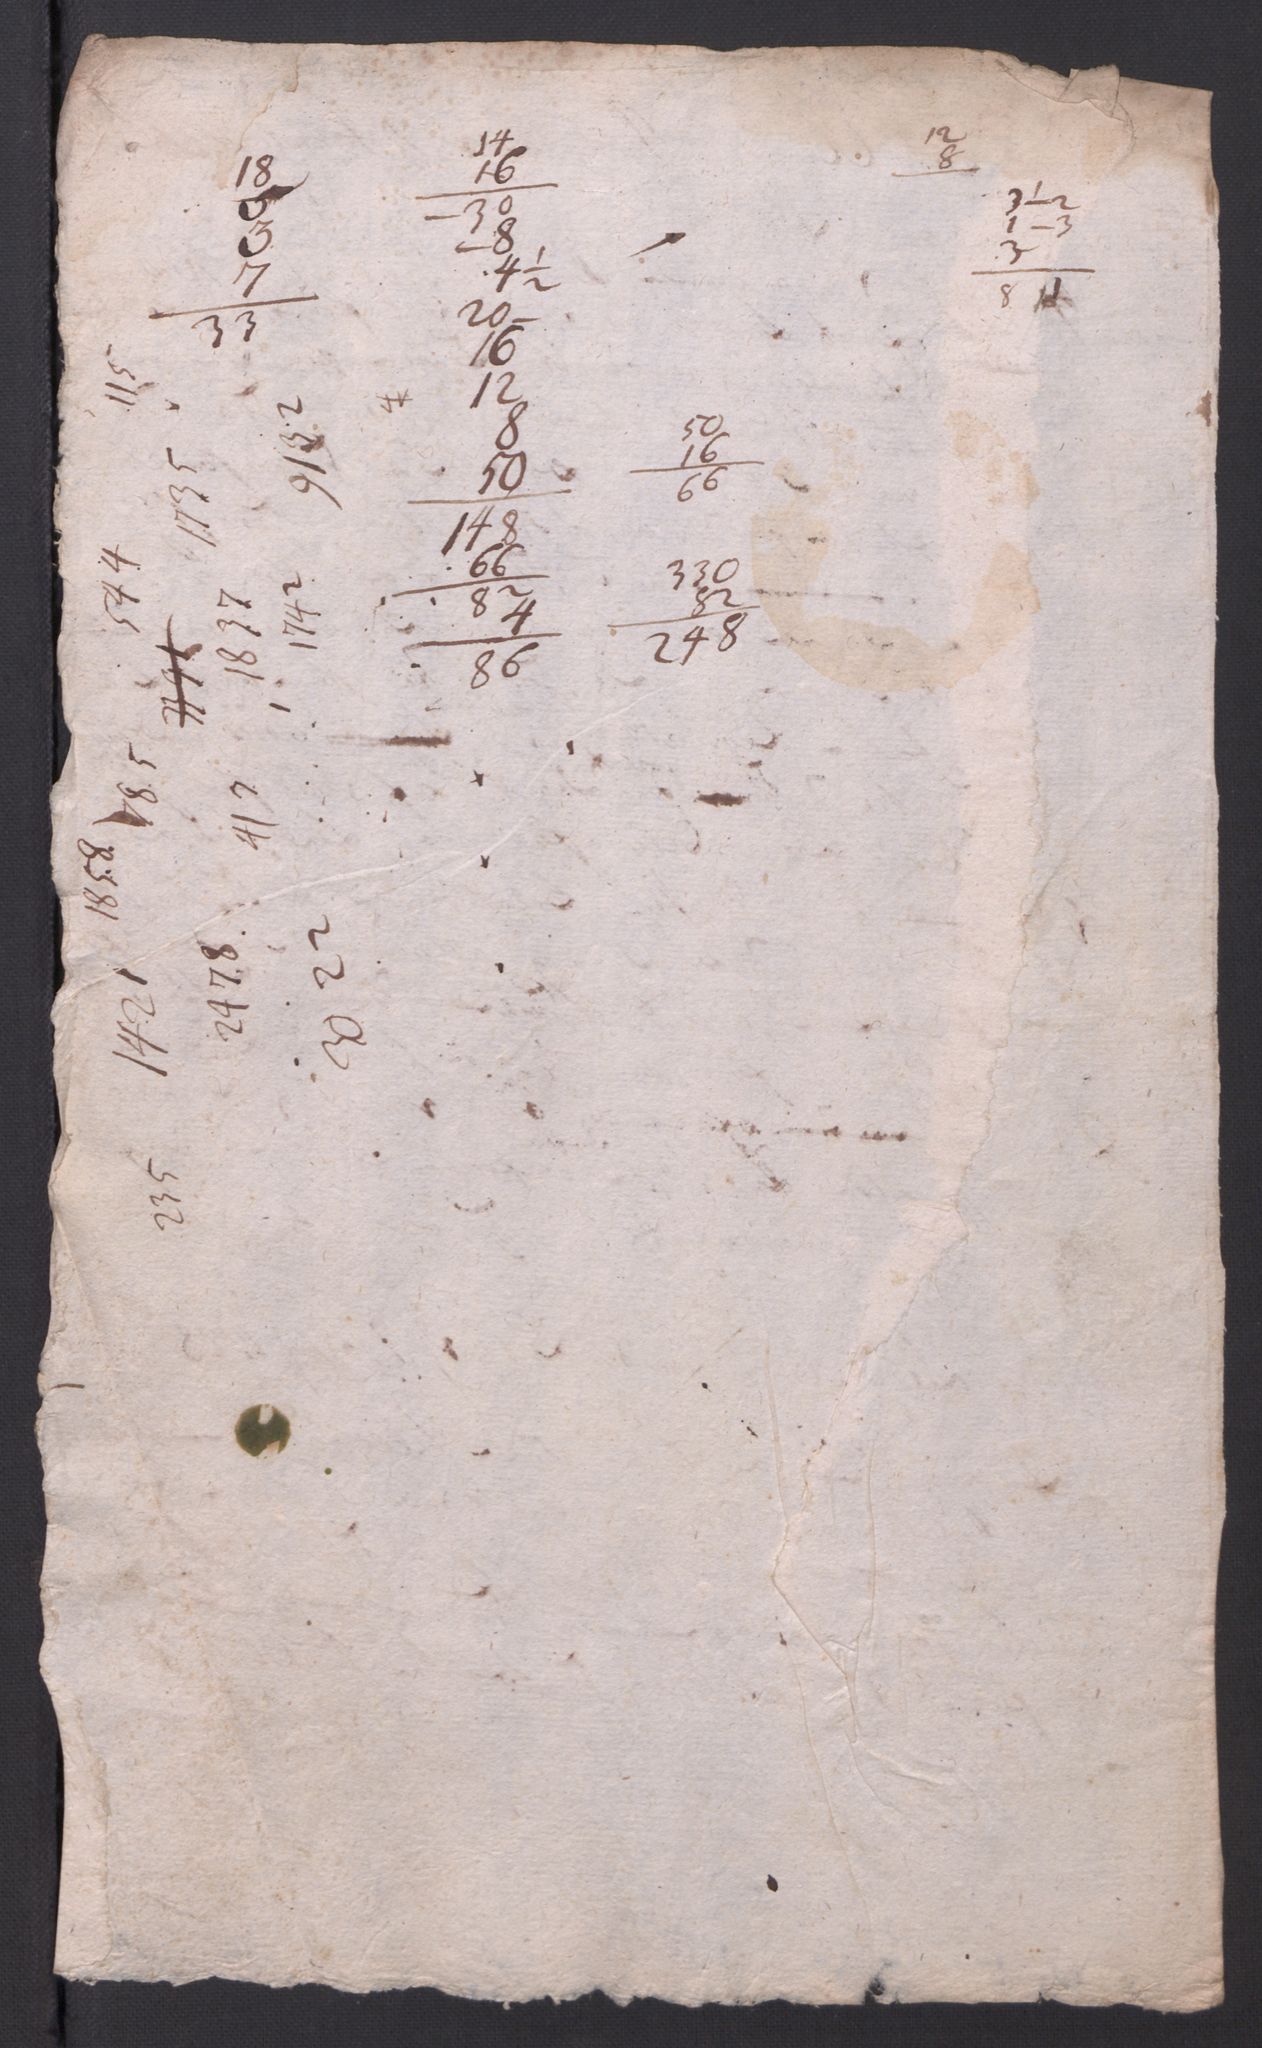 18
3
7
33
14
16
30
8
4 1/2
20
16
12
8
50
148
66
82
4
86
50
16
66
330
82
248
12
8
3 1/2
1 - 3
3
8 11
115
544
185
1858
1135
1421
235
1837
417
2478
9132
1742
30 22